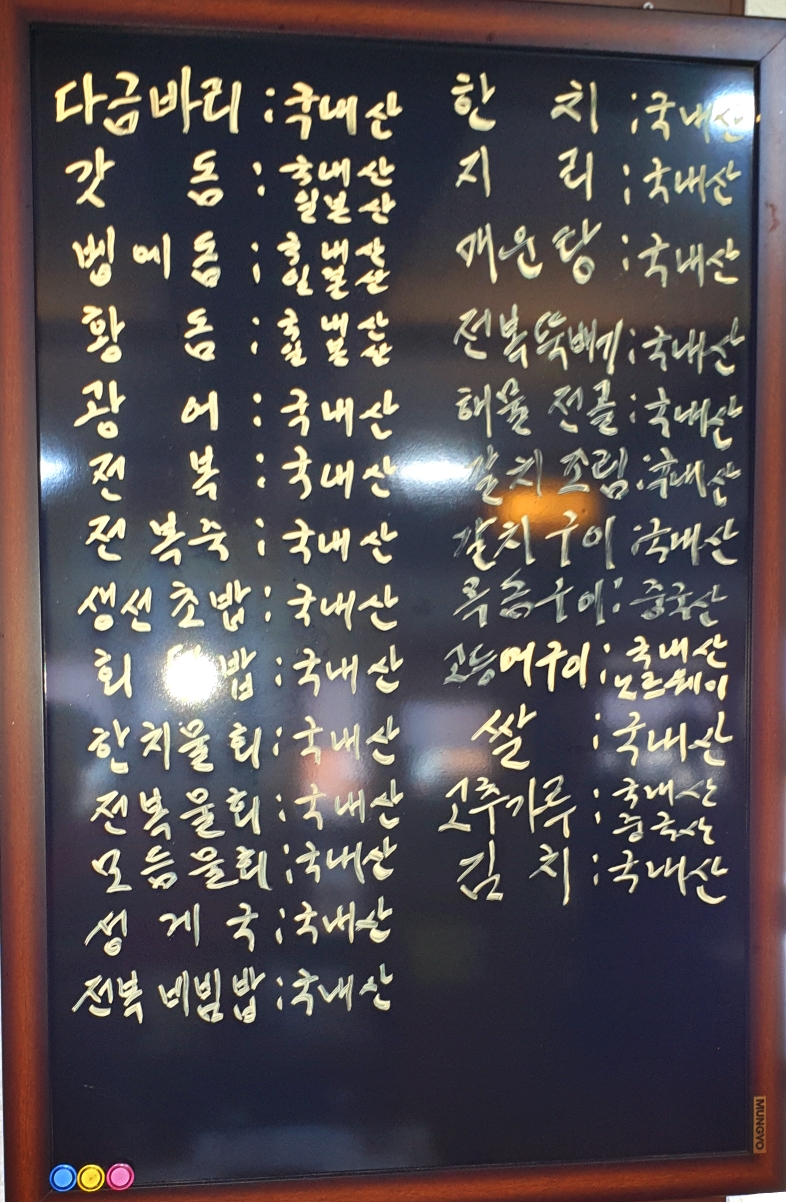 다금바리 : 국내산
갓 돔 : 국내산
일본산
벵에돔 : 국내산
일본산
황 돔 : 국내산
일본산
광 어 : 국내산
전 복 : 국내산
전복죽 : 국내산
생선초밥 : 국내산
회 밥 : 국내산
한치물회 : 국내산
전복물회 : 국내산
모듬물회 : 국내산
성게국 : 국내산
전복비빔밥 : 국내산
한 치 : 국내산
지 리 : 국내산
매운탕 : 국내산
전복뚝배기 : 국내산
해물전골 : 국내산
갈치조림 : 국내산
갈치구이 : 국내산
옥돔구이 : 중국산
고등어구이 : 국내산
노르웨이
쌀 : 국내산
고추가루 : 국내산
중국산
김 치 : 국내산
MUNGYO